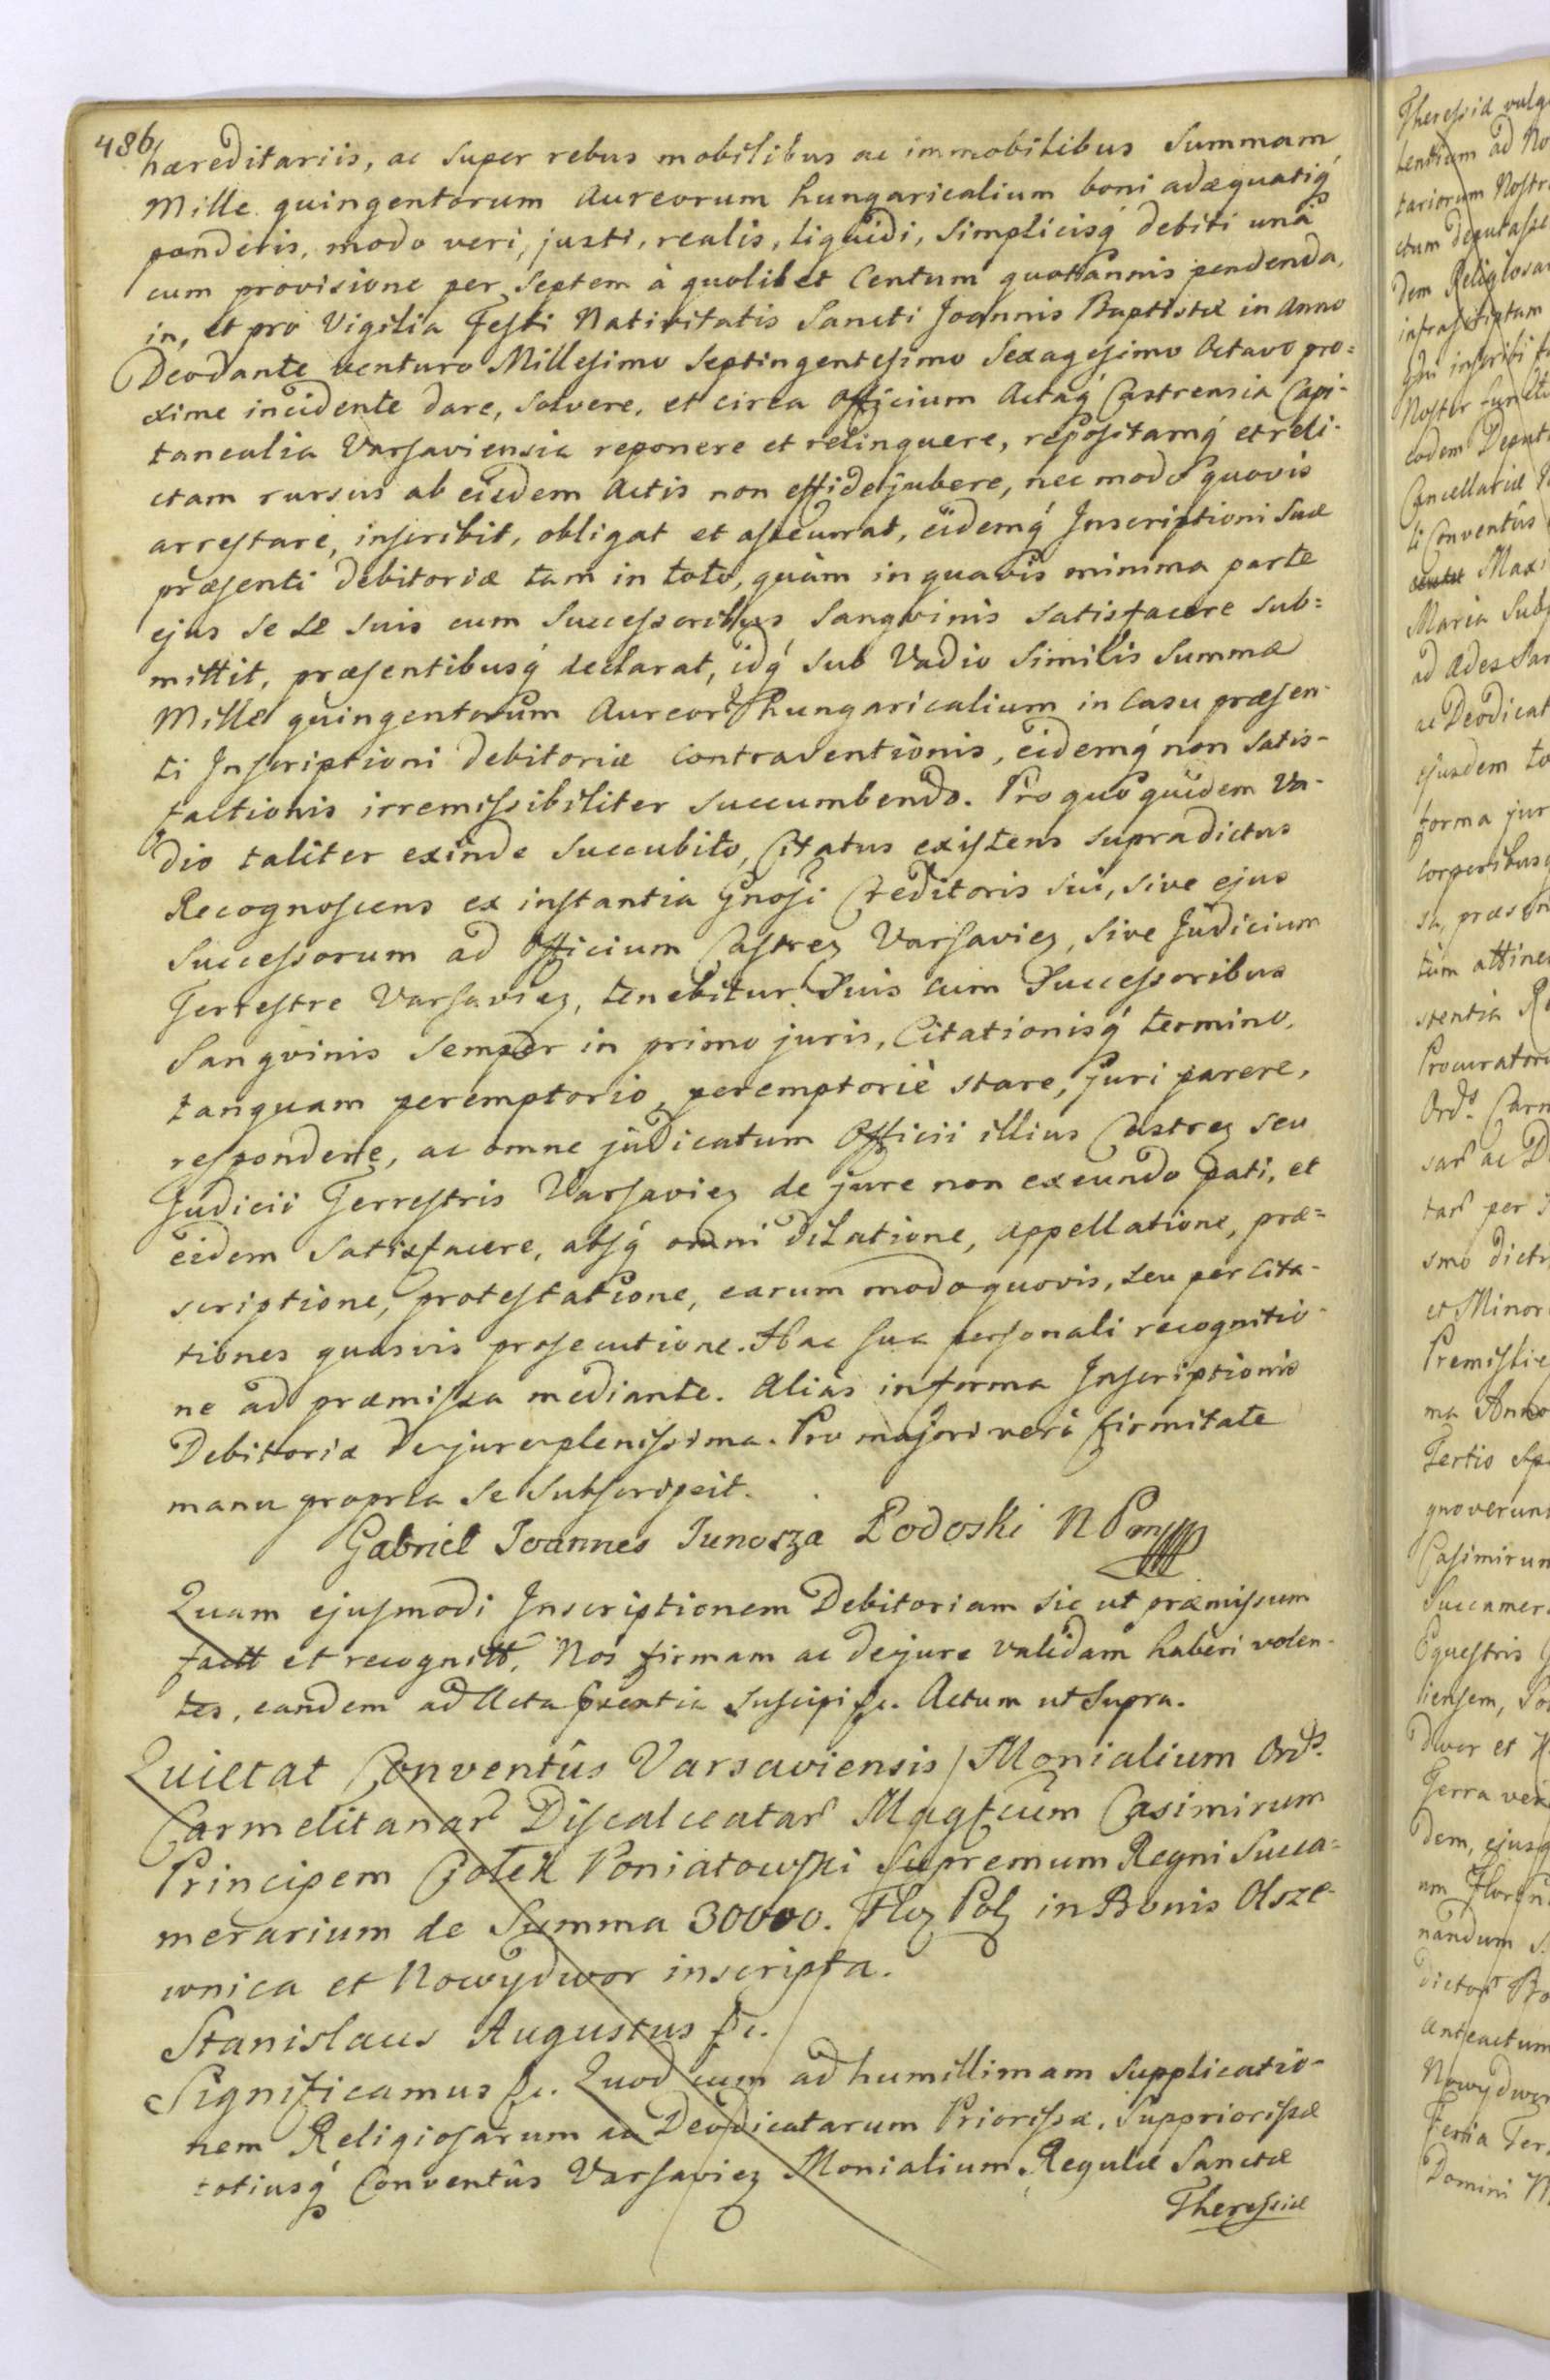 486
hæreditariis, ac super rebus mobilibus ac immobilibus Summam
Mille quingentorum Aureorum hungaricalium boni adæquatiq́
ponderis, modo veri, justi, realis, liquidi, simplicisq́ debiti unà
cum provisione per Septem à quolibet Centum quottannis pendenda,
in, et pro Vigilia Festi Nativitatis Sancti Joannis Baptistæ in Anno
Deodante venturo Millesimo Septingentesimo Sexagesimo Octavo pro=
xime incidente dare, solvere, et circa officium Actaq́ Castrensia Capi-
tanealia Varsaviensia reponere et relinquere, repositamq́ et reli-
ctam rursus ab eisdem Actis non effidejubere, nec modo quovis
arrestare, inscribit, obligat et assecurat, eidemq́ Inscriptioni suæ
præsenti debitoriæ tam in toto, quàm in quavis minima parte
ejus se se suis cum Successoribus Sangvinis satisfacere sub=
mittit, præsentibusq́ declarat, idq́ sub Vadio similis Summæ
Mille quingentorum Aureorũ hungaricalium in Casu præsen-
ti Inscriptioni debitoriæ Contraventionis, eidemq́ non satis-
factionis irremissibiliter succumbendo. Pro quo quidem Va-
dio taliter exinde succubito, Citatus existens supradictus
Recognoscens ex instantia Gnosi Creditoris sui, sive ejus
Successorum ad Officium Castrez Varsaviez, sive Judicium
Terrestre Varsaviez, tenebitur Suis cum Successoribus
Sangvinis semper in primo juris, Citationisq́ termino,
tanquam peremptorio, peremptoriè stare, juri parere,
respondere, ac omne judicatum Officii illius Castrez seu
Judicii Terrestris Varsaviez de jure non exeundo pati, et
eidem satisfacere, absq́ omni dilatione, appellatione, præ=
scriptione, protestatione, earum modo quovis, seu per Cita-
tiones quasvis prosecutione. Hac sua personali recognitio-
ne ad præmissa mediante. Aliàs in forma Inscriptionis
Debitoriæ de jure plenissima. Pro majori verò firmitate
manu propria se subscripsit.
Gabriel Joannes Junosza Podoski N P mp
Quam ejusmodi Inscriptionem Debitoriam sic ut præmissum
factt et recognitt, Nos firmam ac de jure validam haberi volen-
tes, eandem ad Acta suscipi &c. Actum ut Supra.
Quietat Conventûs Varsaviensis Monialium Ords.
Carmelitanar̃ Discalceatar̃ Magfcum Casimirum
Principem Ciołek Poniatowski Supremum Regni Succa=
merarium de Summa 30000. Floz Polz in Bonis Olsze-
wnica et Nowydwor inscripta.
Stanislaus Augustus &c.
Significamus &c. Quod cum ad humillimam supplicatio-
nem Religiosarum ac Deodicatarum Priorissæ, Suppriorissæ
totiusq́ Conventûs Varsaviez Monialium Regulæ Sanctæ
Theressiæ
Theressiæ
ad No
tariorum Nostr
ctum deputasse
dem Religiosa
infrascriptam
Noster
eodem Deput
Cancellariæ
Conventûs
Maxi
Maria Sub
ad Ædes San
ac Deodicat
ejusdem to
forma jur
corporibus
sa, præsen
tùm attine
stentia
Procurator
Ords. Carm
sar̃ ac D
tar̃ per
smo dict
et Minor
Premisli
ma Anno
Tertio
gnoverun
Casimirum
Succamer
Equestris
liensem,
dwor et
Terra
dem, ejusq
um Floren
nandum
dictor̃ Bo
anteactum
Nowydwor
Feria Ter
Domini M